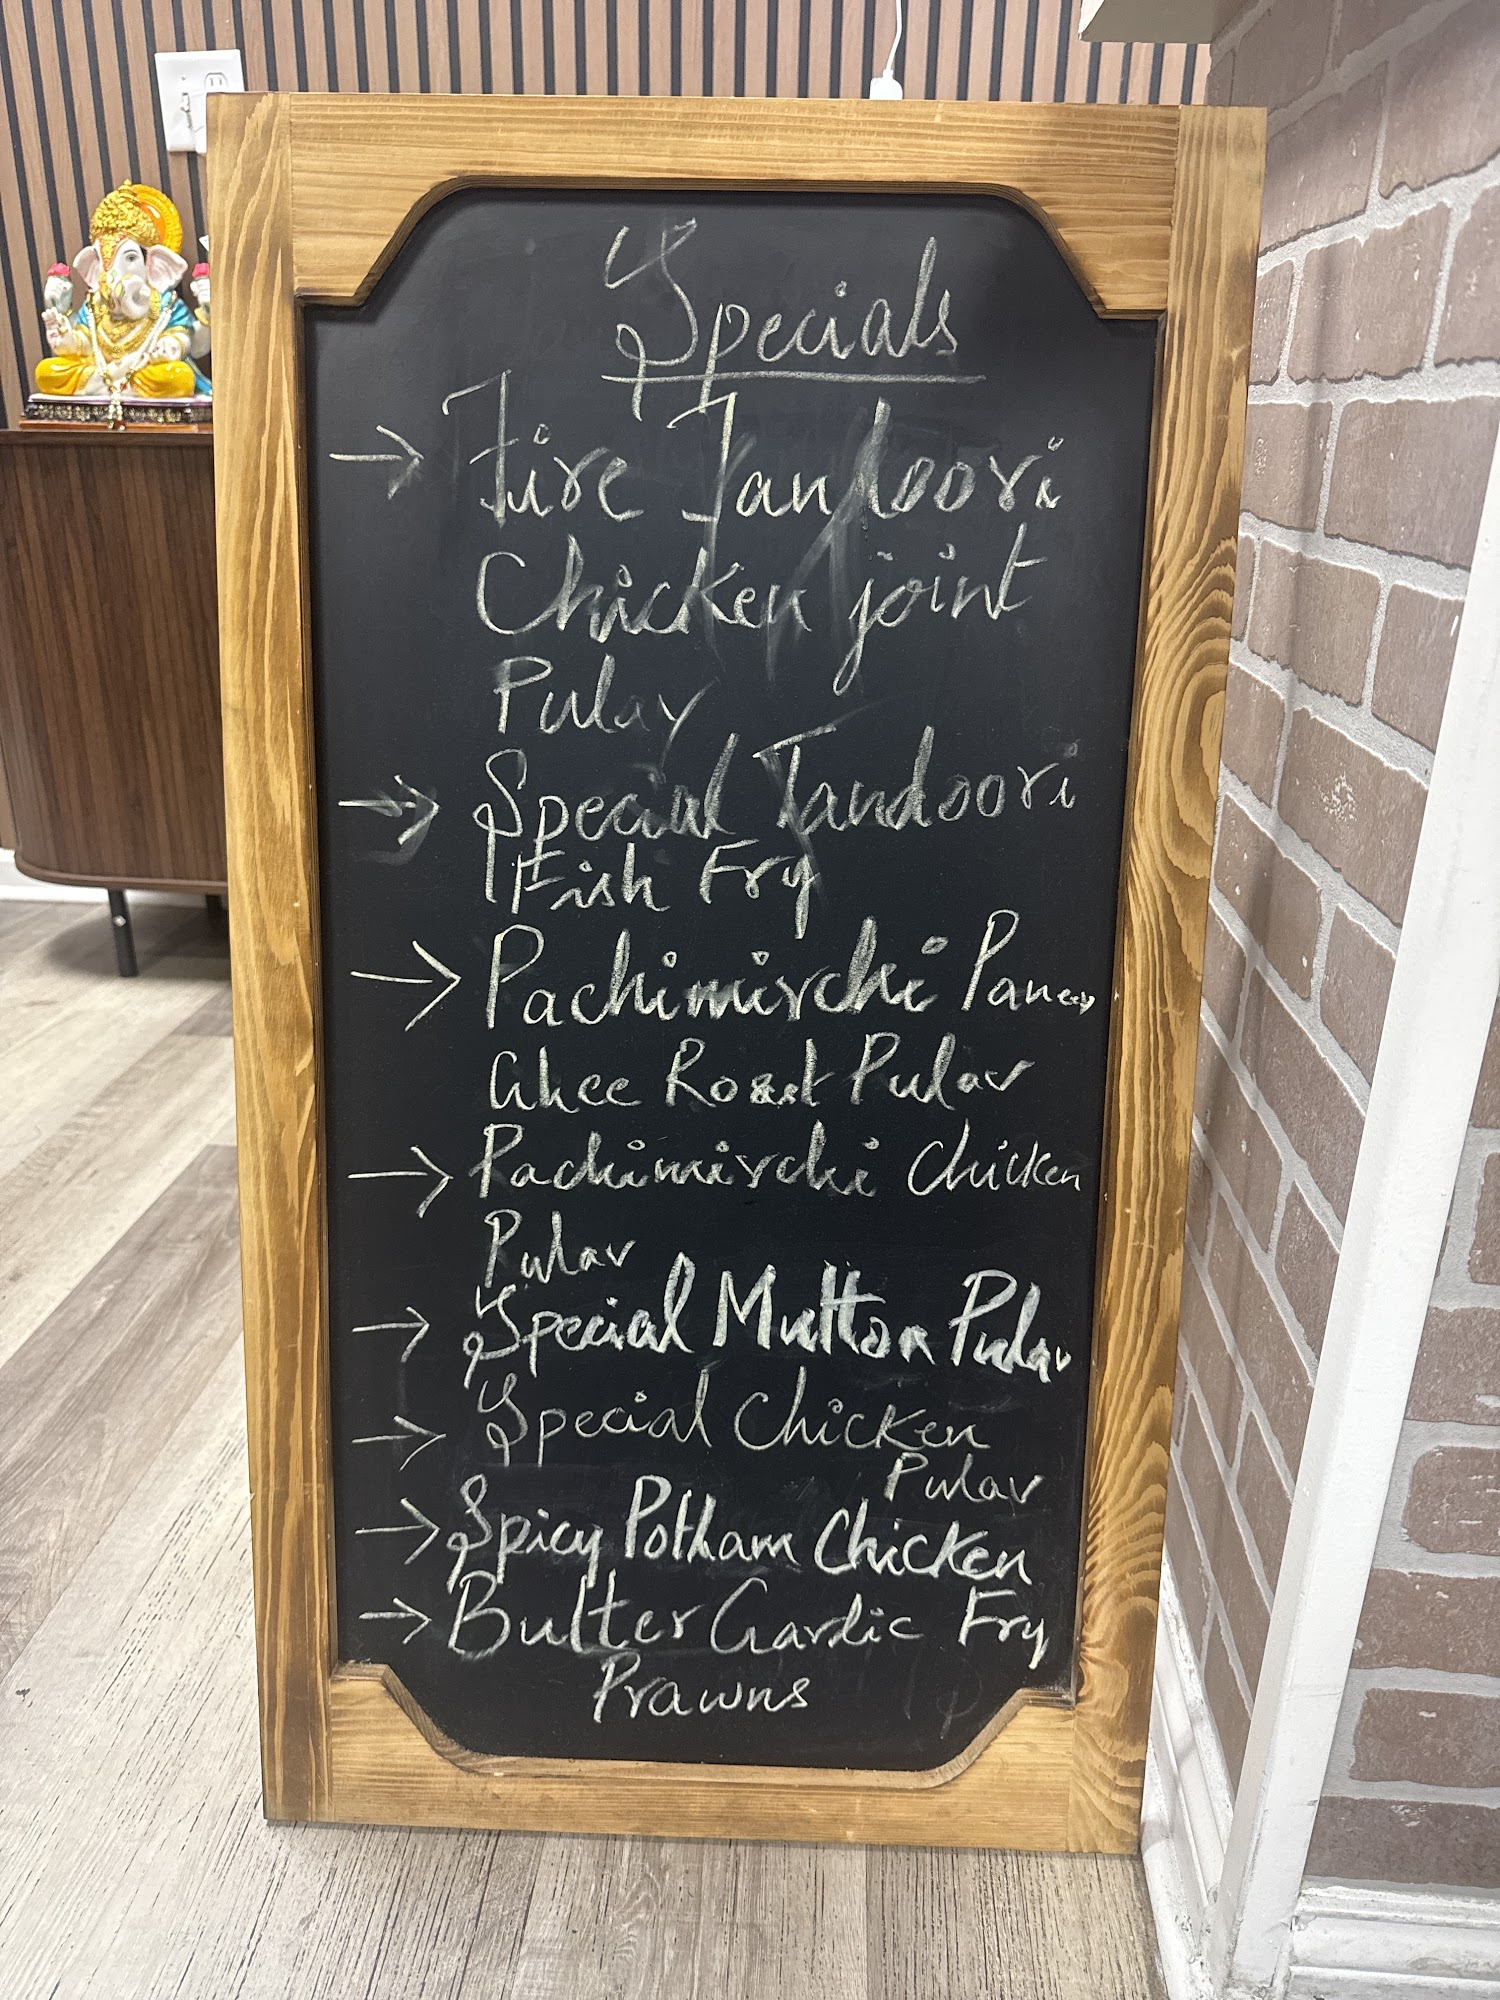 Specials
→ Fire Tandoori
Chicken joint
Pulav
→ Special Tandoori
Fish Fry
→ Pachimirchi Paneer
Ghee Roast Pulav
→ Pachimirchi Chicken
Pulav
→ Special Mutton Pulav
→ Special Chicken
Pulav
→ Spicy Potham Chicken
→ Butter Garlic Fry
Prawns